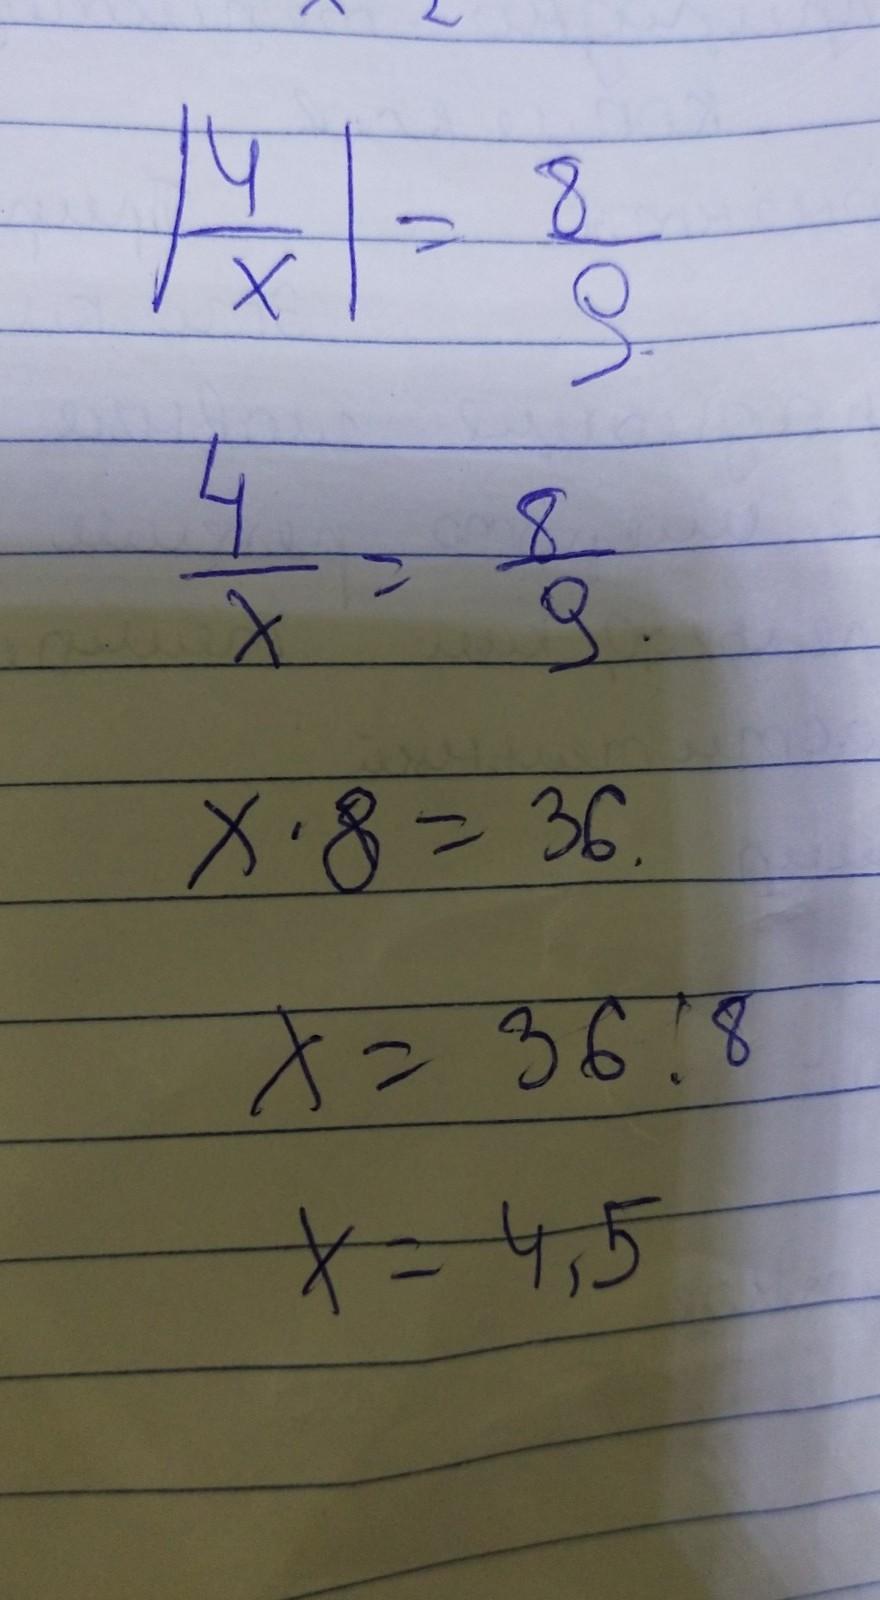 |4/x| = 8/9.
4/x = 8/9.
x · 8 = 36.
x = 36 : 8
x = 4,5